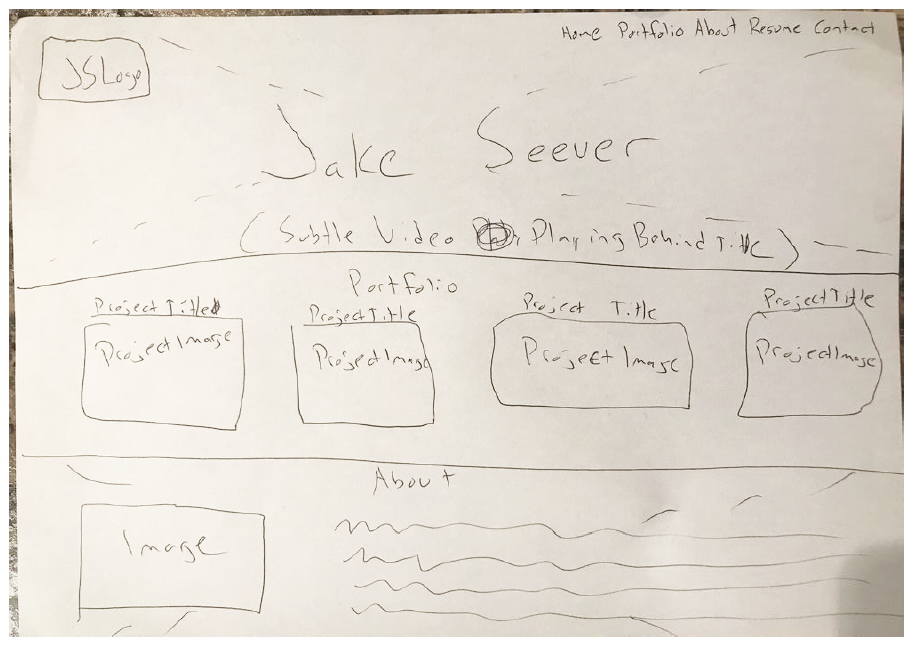 Home Portfolio About Resume Contact
JS Logo
Jake Seever
(Subtle Video Playing Behind Title)
Portfolio
Project Title
Project Title
Project Title
Project Title
Project Image
Project Image
Project Image
Project Image
About
Image